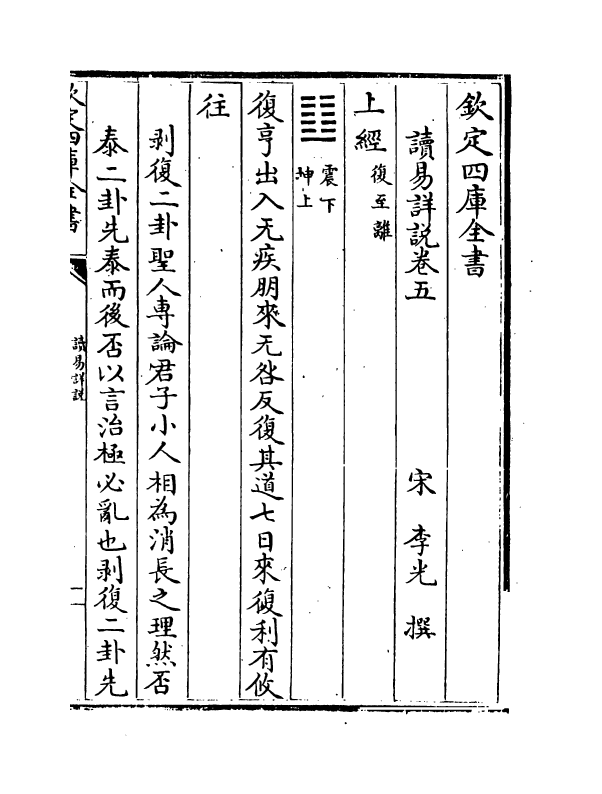 欽定四庫全書
讀易詳説卷五　宋　李光　撰
上經復至離
震下
坤上
復亨出入无疾朋來无咎反復其道七日來復利有攸
往
剥復二卦聖人專論君子小人相為消長之理然否
泰二卦先泰而後否以言治極必亂也剥復二卦先
欽定四庫全書
讀易詳説
一